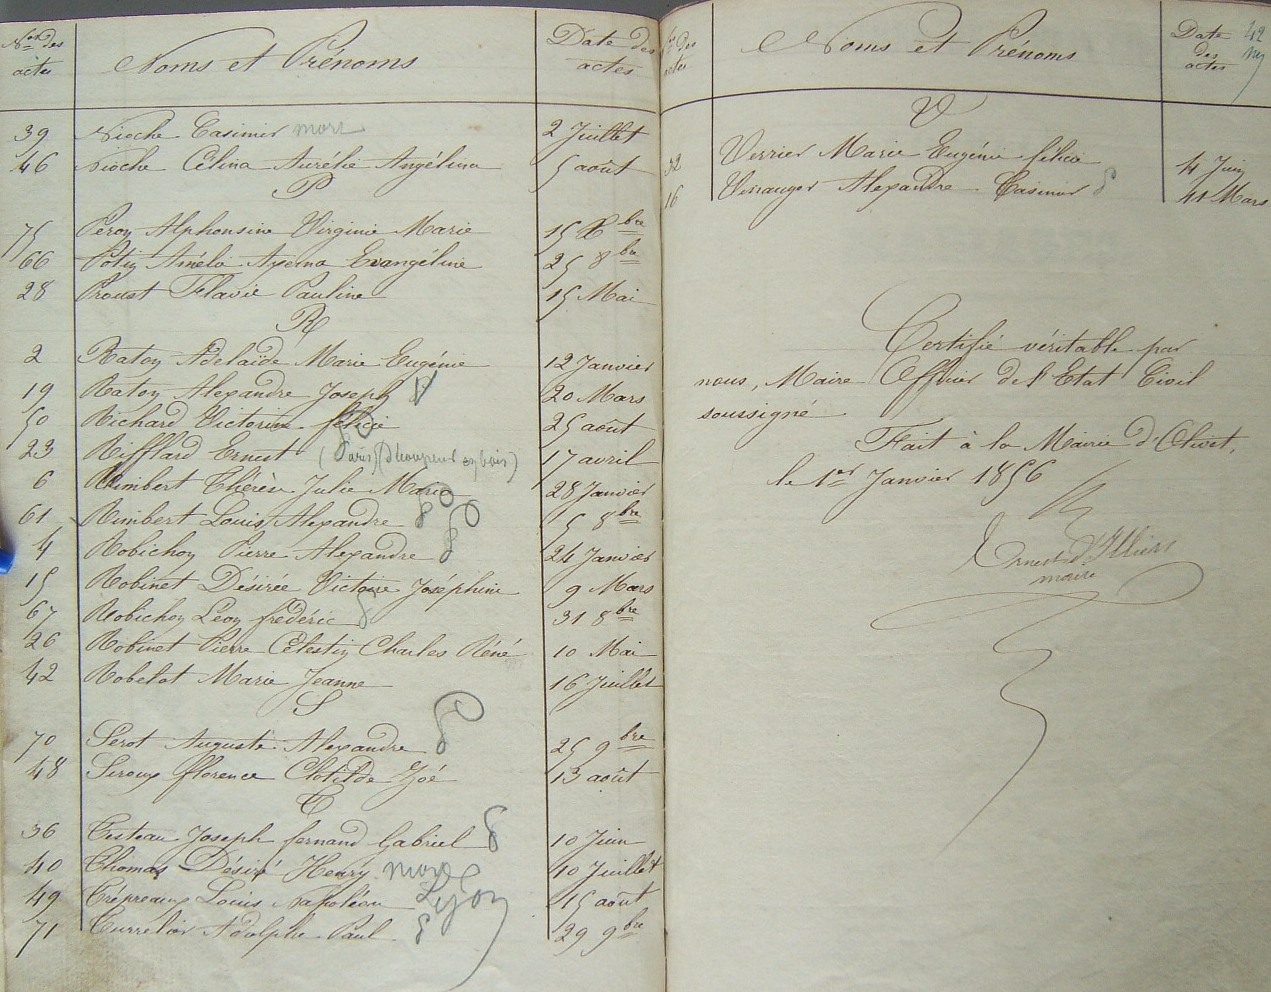 Nos des actes Noms et Prénoms Date des actes
39 Nioche Casimir mort 2 Juillet
46 Nioche Célina Aurélie Angélina 5 août
P
75 Peron Alphonsine Virginie Marie 15 Xbre
66 Potin Evangéline 25 8bre
28 Proust Flavie Pauline 15 Mai
R
2 Raton Adelaïde Marie Eugénie 12 Janvier
19 Raton Alexandre Joseph 20 Mars
50 Richard Victorine félicie 25 août
23 Rifflard Ernest (Paris) (Découpeur en bois) 17 avril
6 Rimbert Thérèse Julie Marie 28 Janvier
61 Rimbert Louis Alexandre 15 8bre
4 Robichon Pierre Alexandre 24 Janvier
15 Robinet Désirée Victoire Joséphine 9 Mars
67 Robichon Léon frédéric 31 8bre
26 Robinet Pierre Célestin Charles Réné 10 Mai
42 Robelot Marie Jeanne 16 Juillet
S
70 Serot Auguste Alexandre 25 9bre
48 Siroux florence Clotilde Zoé 13 août
T
36 Testeau Joseph fernand Gabriel 10 Juin
40 Thomas Désiré Henry mort 10 Juillet
49 Trépreaux Louis Napoléon Lyon 15 août
71 Turrelier Adolphe Paul 29 9bre
Nos des actes Noms et Prénoms Date des actes 42
V
32 Verrier Marie Eugénie félicie 4 Juin
16 Verranger Alexandre Casimir 11 Mars
Certifié véritable par
nous, Maire Officier de l'Etat Civil
soussigné
Fait à la Mairie d'Olivet,
le 1er Janvier 1856
Ernest d'Illiers
maire